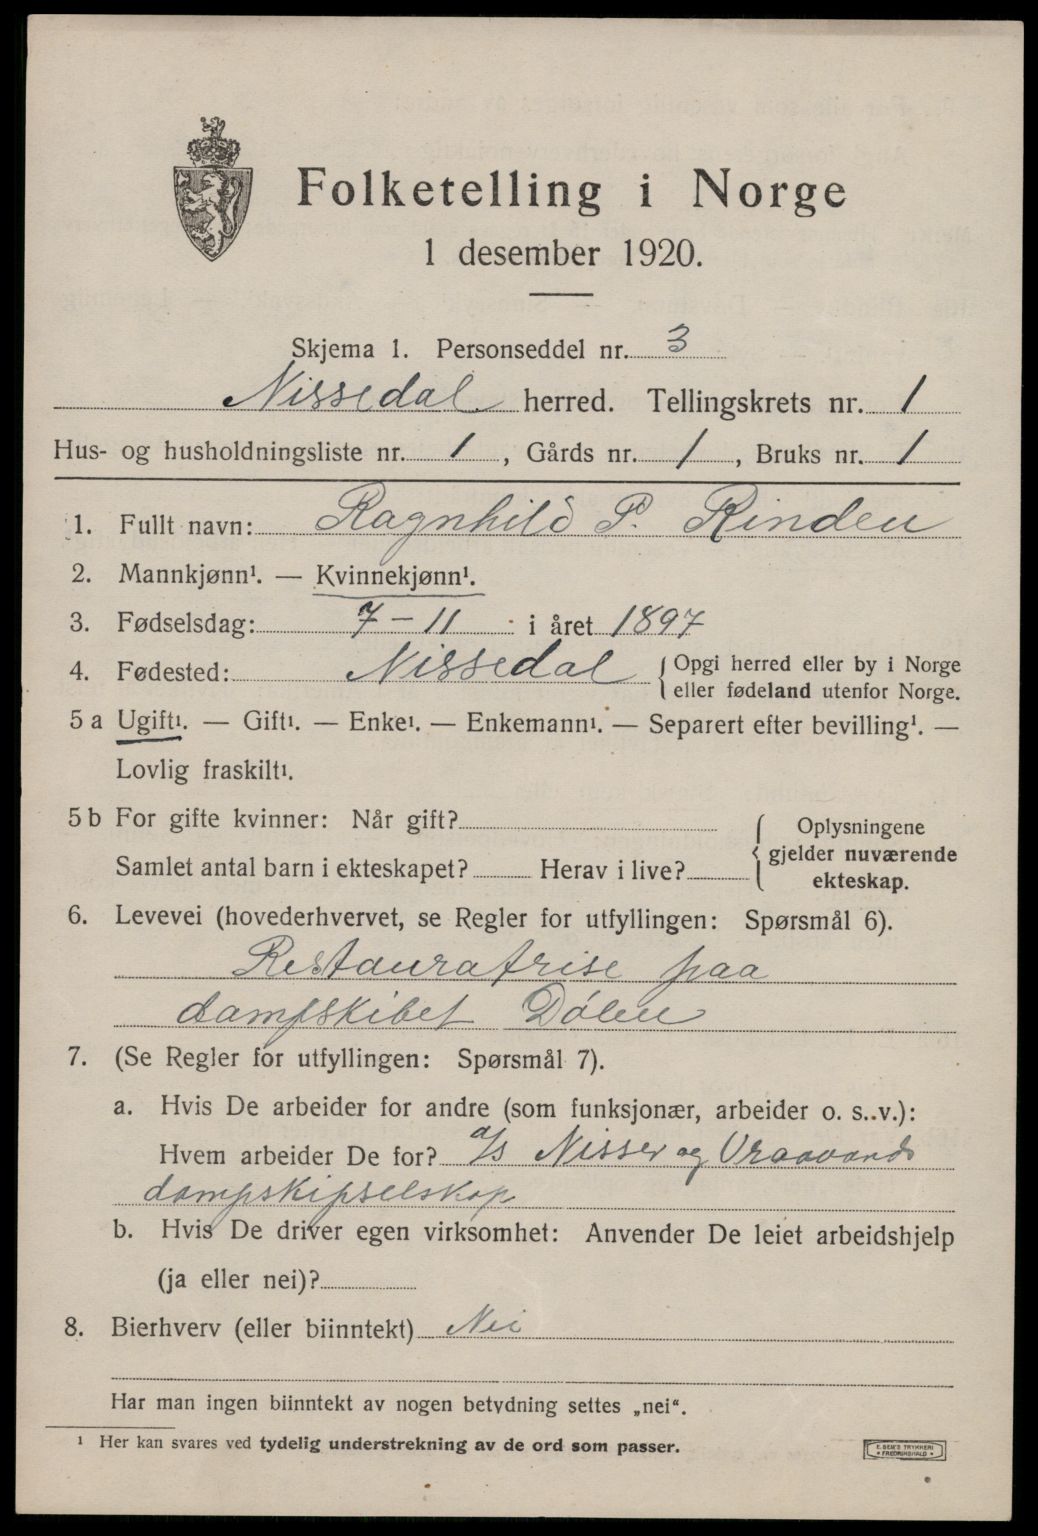 Folketelling i Norge
1 desember 1920.
Skjema 1. Personseddel nr. 3
Nissedal herred. Tellingskrets nr. 1
Hus- og husholdningsliste nr. 1, Gårds nr. 1, Bruks nr. 1
1. Fullt navn: Ragnhild P. Rinden
2. Mannkjønn¹. — Kvinnekjønn¹.
3. Fødselsdag: 7-11 i året 1897
4. Fødested: Nissedal { Opgi herred eller by i Norge
eller fødeland utenfor Norge.
5 a Ugift¹. — Gift¹. — Enke¹. — Enkemann¹. — Separert efter bevilling¹. —
Lovlig fraskilt¹.
5 b For gifte kvinner: Når gift?
Samlet antal barn i ekteskapet? Herav i live?
{ Oplysningene
gjelder nuværende
ekteskap.
6. Levevei (hovederhvervet, se Regler for utfyllingen: Spørsmål 6).
Restauratrise paa
dampskibet Dölen
7. (Se Regler for utfyllingen: Spørsmål 7).
a. Hvis De arbeider for andre (som funksjonær, arbeider o. s. v.):
Hvem arbeider De for? a/s Nisser og Vraavands
dampskipselskap
b. Hvis De driver egen virksomhet: Anvender De leiet arbeidshjelp
(ja eller nei)?
8. Bierhverv (eller biinntekt) Nei
Har man ingen biinntekt av nogen betydning settes „nei“.
¹ Her kan svares ved tydelig understrekning av de ord som passer.
E. SEM'S TRYKKERI
• FREDRIKSHALD •